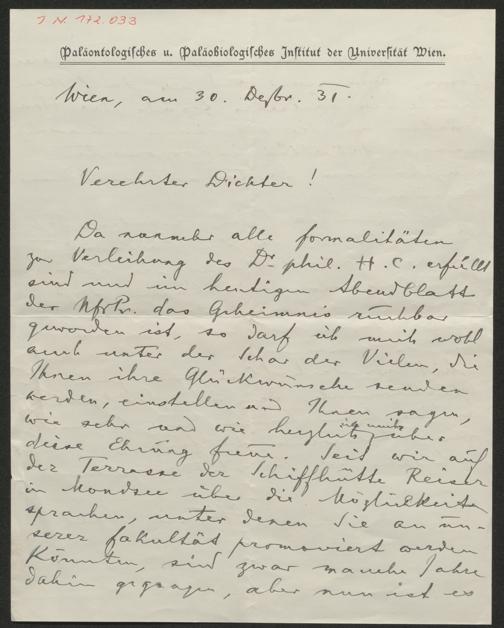 I. N. 172.033
Paläontologisches u. Paläobiologisches Institut der Universität Wien.
Wien, am 30. Dezbr. 31.
Verehrter Dichter!
Da nunmehr alle Formalitäten
zur Verleihung des Dr. phil. H. C. erfüllt
sind und im heutigen Abendblatt
der NfrPr. das Geheimnis ruchbar
geworden ist, so darf ich mich wohl
auch unter der Schar der Vielen, die
Ihnen ihre Glückwünsche senden
werden, einstellen und Ihnen sagen,
wie sehr und wie herzlich ich mich über
diese Ehrung freue. Seit wir auf
der Terrasse der Schiffhütte Reiser
in Mondsee über die Möglichkeiten
sprachen, unter denen Sie an un-
serer Fakultät promoviert werden
könnten, sind zwar manche Jahre
dahin gegangen, aber nun ist es